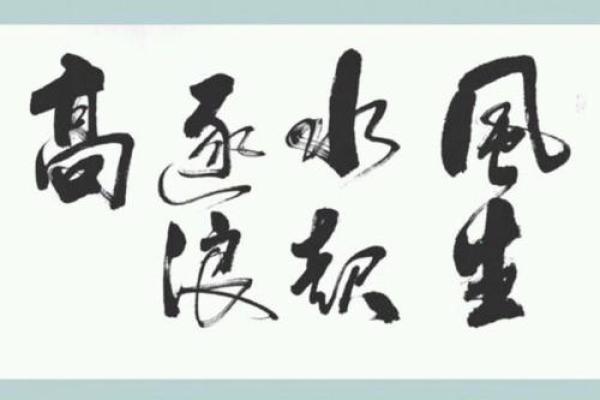 風生
水起
逐浪
高